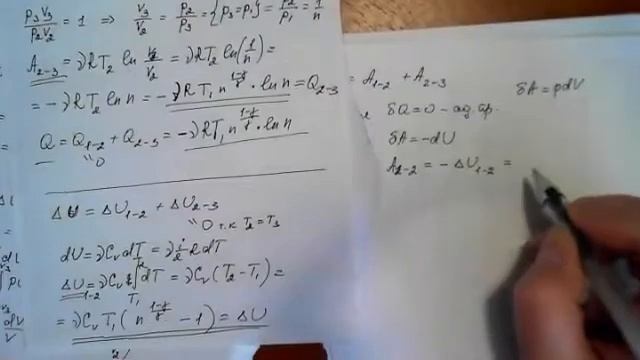 p₃V₃/p₂V₂ = 1 ⇒ V₃/V₂ = p₂/p₃ = {p₃=p₁} = p₂/p₁ = 1/n
A₂₋₃ = νRT₂ ln V₃/V₂ = νRT₂ ln(1/n) =
= -νRT₂ ln n = -νRT₁ n^((1-γ)/γ) · ln n = Q₂₋₃
Q = Q₁₋₂ + Q₂₋₃ = -νRT₁ n^((1-γ)/γ) · ln n
"0
ΔU = ΔU₁₋₂ + ΔU₂₋₃
"0 т.к T₂ = T₃
dU = νCᵥdT = ν i/2 RdT
ΔU₁₋₂ = νCᵥ∫dT = νCᵥ(T₂ - T₁) =
T₁
= νCᵥT₁(n^((1-γ)/γ) - 1) = ΔU
= A₁₋₂ + A₂₋₃
δA = pdV
δQ = 0 - ад. пр.
δA = -dU
A₁₋₂ = -ΔU₁₋₂ =